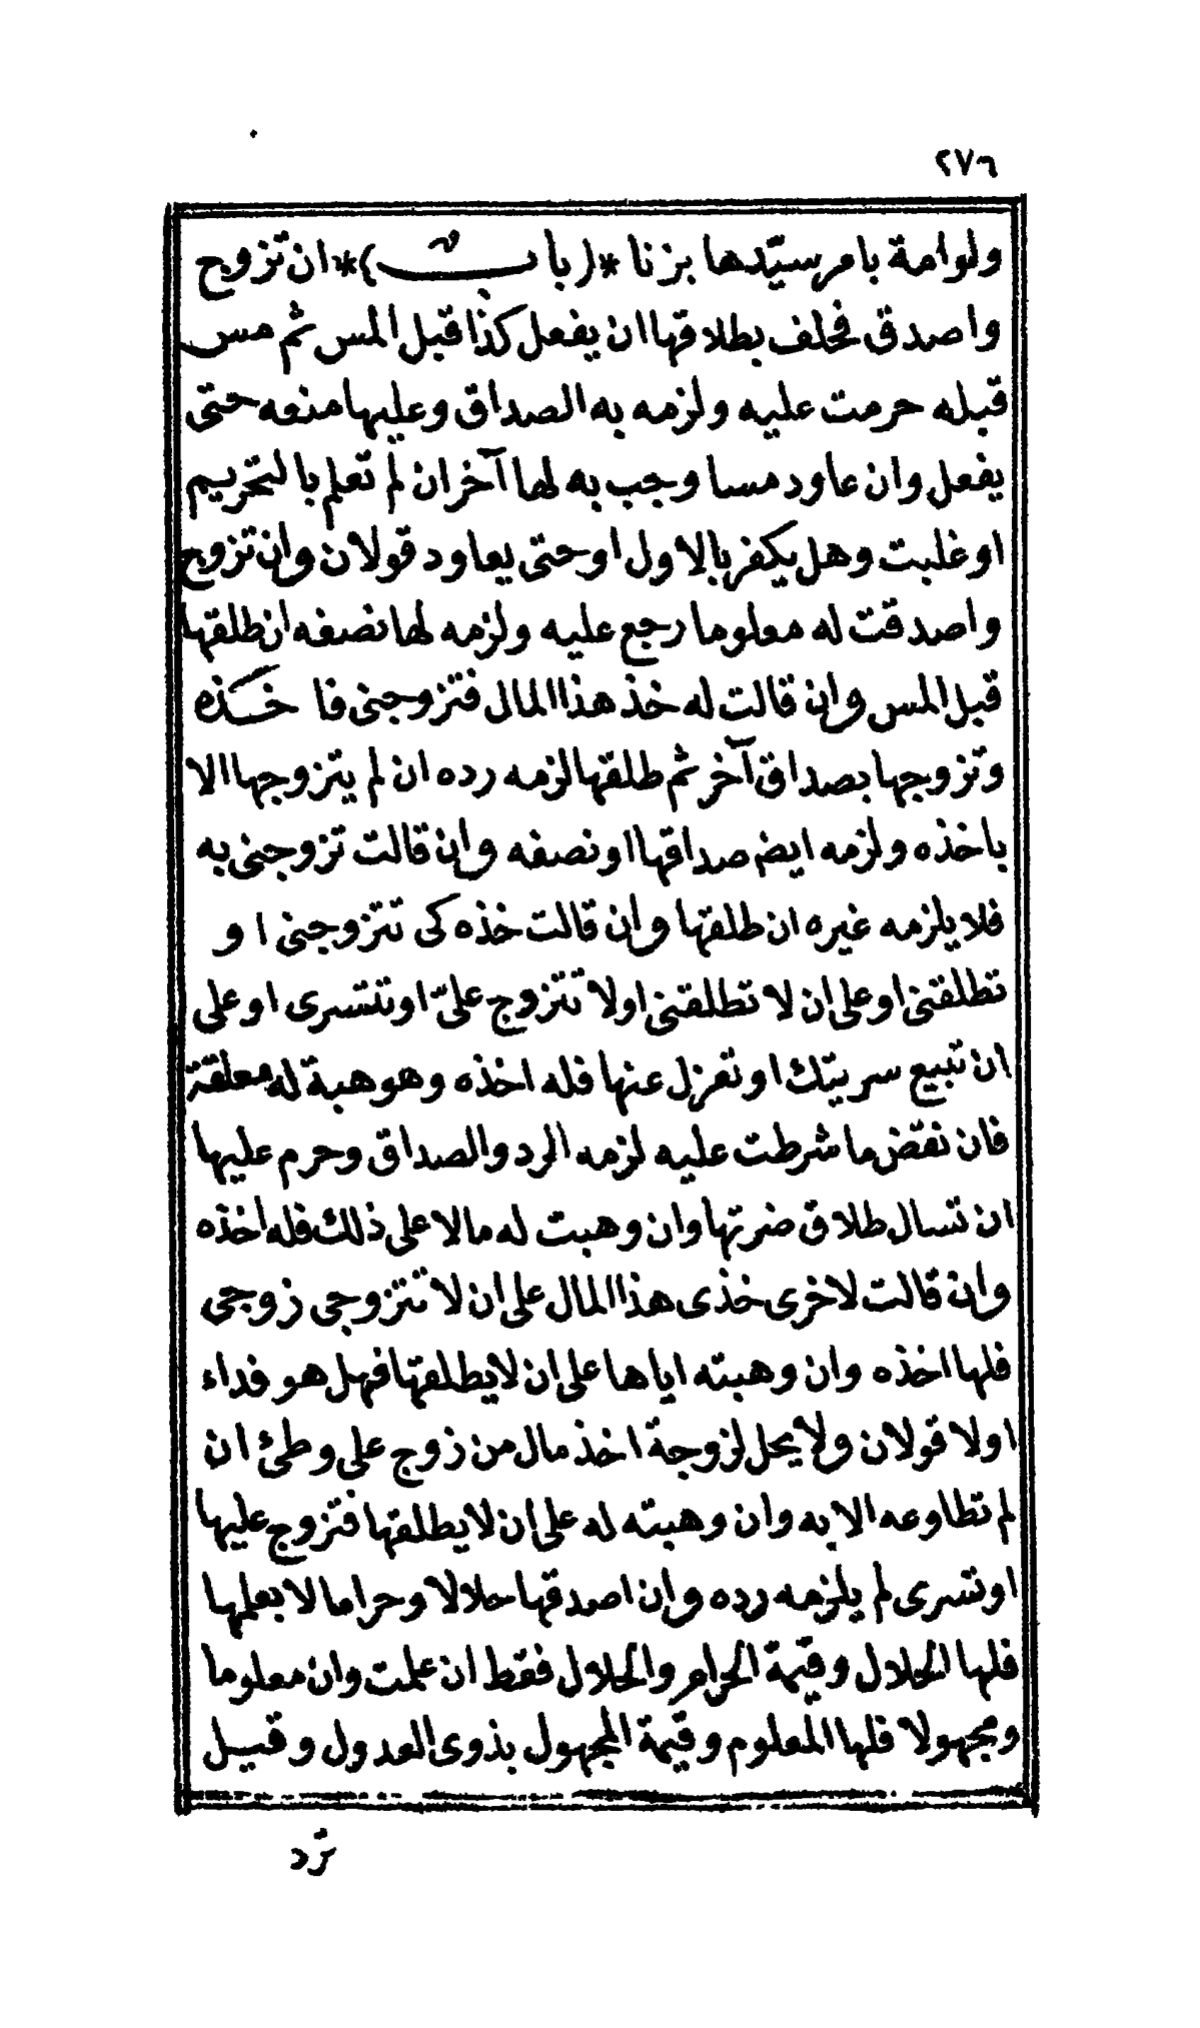 ٢٧٦
ولوامة بامر سيّدها بزنا *(باب)* ان تزوج
واصدق فحلف بطلاقها ان يفعل كذا قبل المس ثم مس
قبله حرمت عليه ولزمه به الصداق وعليها منعه حتى
يفعل وان عاود مسا وجب به لها آخر ان لم تعلم بالتحريم
او غلبت وهل يكفر بالاول او حتى يعاود قولان وان تزوج
واصدقت له معلوما رجع عليه ولزمه لها نصفه ان طلقها
قبل المس وان قالت له خذ هذا المال فتزوجنى فاخذه
وتزوجها بصداق آخر ثم طلقها لزمه رده ان لم يتزوجها الا
باخذه ولزمه ايض صداقها او نصفه وان قالت تزوجنى به
فلا يلزمه غيره ان طلقها وان قالت خذه كى تتزوجنى او
تطلقنى او على ان لا تطلقنى اولا تتزوج علىّ او تتسرى او على
ان تبيع سريتك او تعزل عنها فله اخذه وهو هبة له معلقة
فان نقض ما شرطت عليه لزمه الرد والصداق وحرم عليها
ان تسال طلاق ضرتها وان وهبت له مالا على ذلك فله اخذه
وان قالت لاخرى خذى هذا المال على ان لا تتزوجى زوجى
فلها اخذه وان وهبته اياها على ان لا يطلقها فهل هو فداء
اولا قولان ولا يحل لزوجة اخذ مال من زوج على وطئ ان
لم تطاوعه الا به وان وهبته له على ان لا يطلقها فتزوج عليها
او تسرى لم يلزمه رده وان اصدقها حلالا وحراما لا بعلمها
فلها الحلال وقيمة الحرام والحلال فقط ان علمت وان معلوما
ومجهولا فلها المعلوم وقيمة المجهول بذوى العدول وقيل
ترد